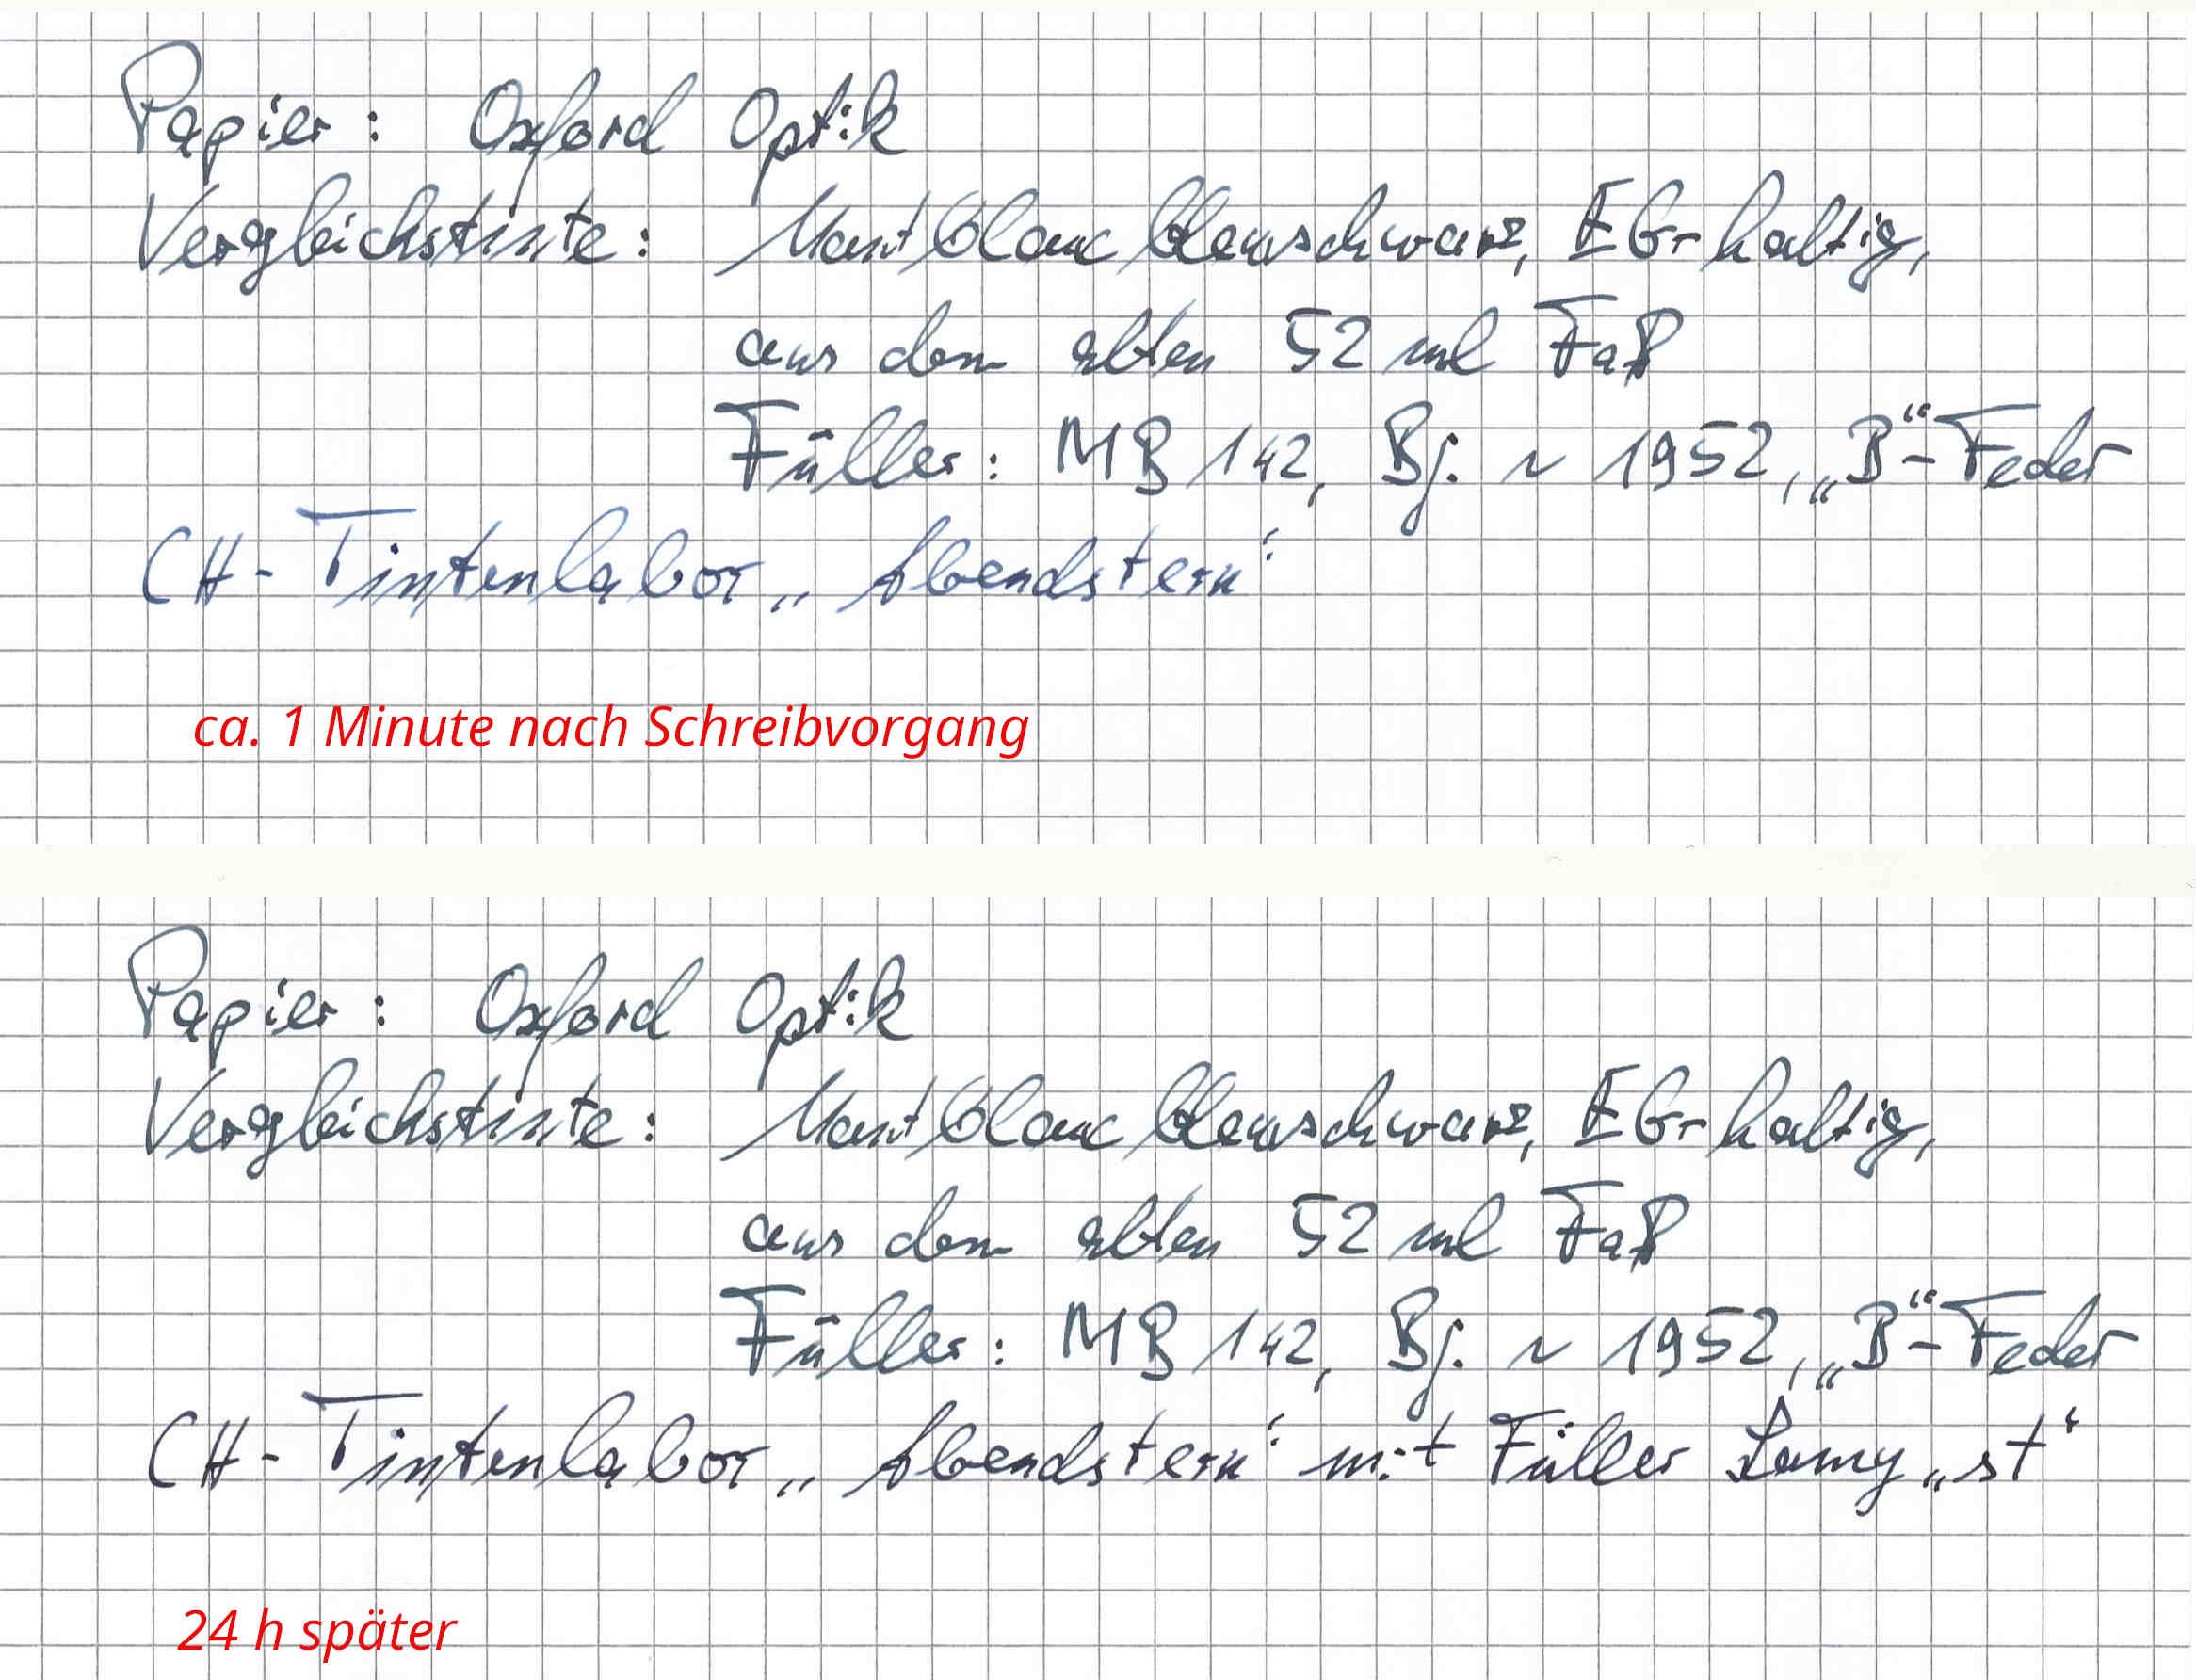 Papier: Oxford Optik
Vergleichstinte: Montblanc blauschwarz, EG-haltig,
aus dem alten 52 ml Faß
Füller: MB 142, Bj. ~ 1952, „B“-Feder
CH-Tintenlabor „Abendstern“
ca. 1 Minute nach Schreibvorgang
Papier: Oxford Optik
Vergleichstinte: Montblanc blauschwarz, EG-haltig,
aus dem alten 52 ml Faß
Füller: MB 142, Bj. ~ 1952, „B“-Feder
CH-Tintenlabor „Abendstern“ mit Füller Lamy „st“
24 h später